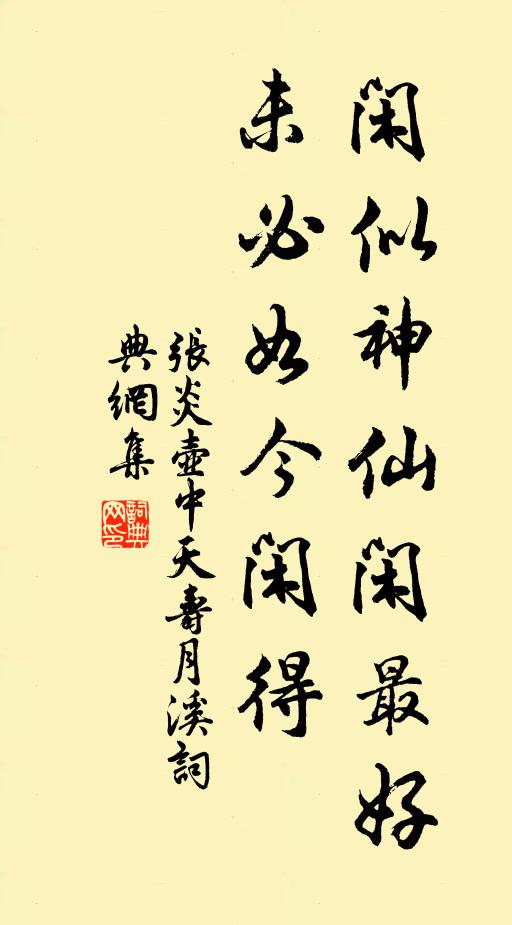 閑似神仙閑最好
未必如今閑得
張炎壺中天壽月溪詞
典網集
詞典
网印